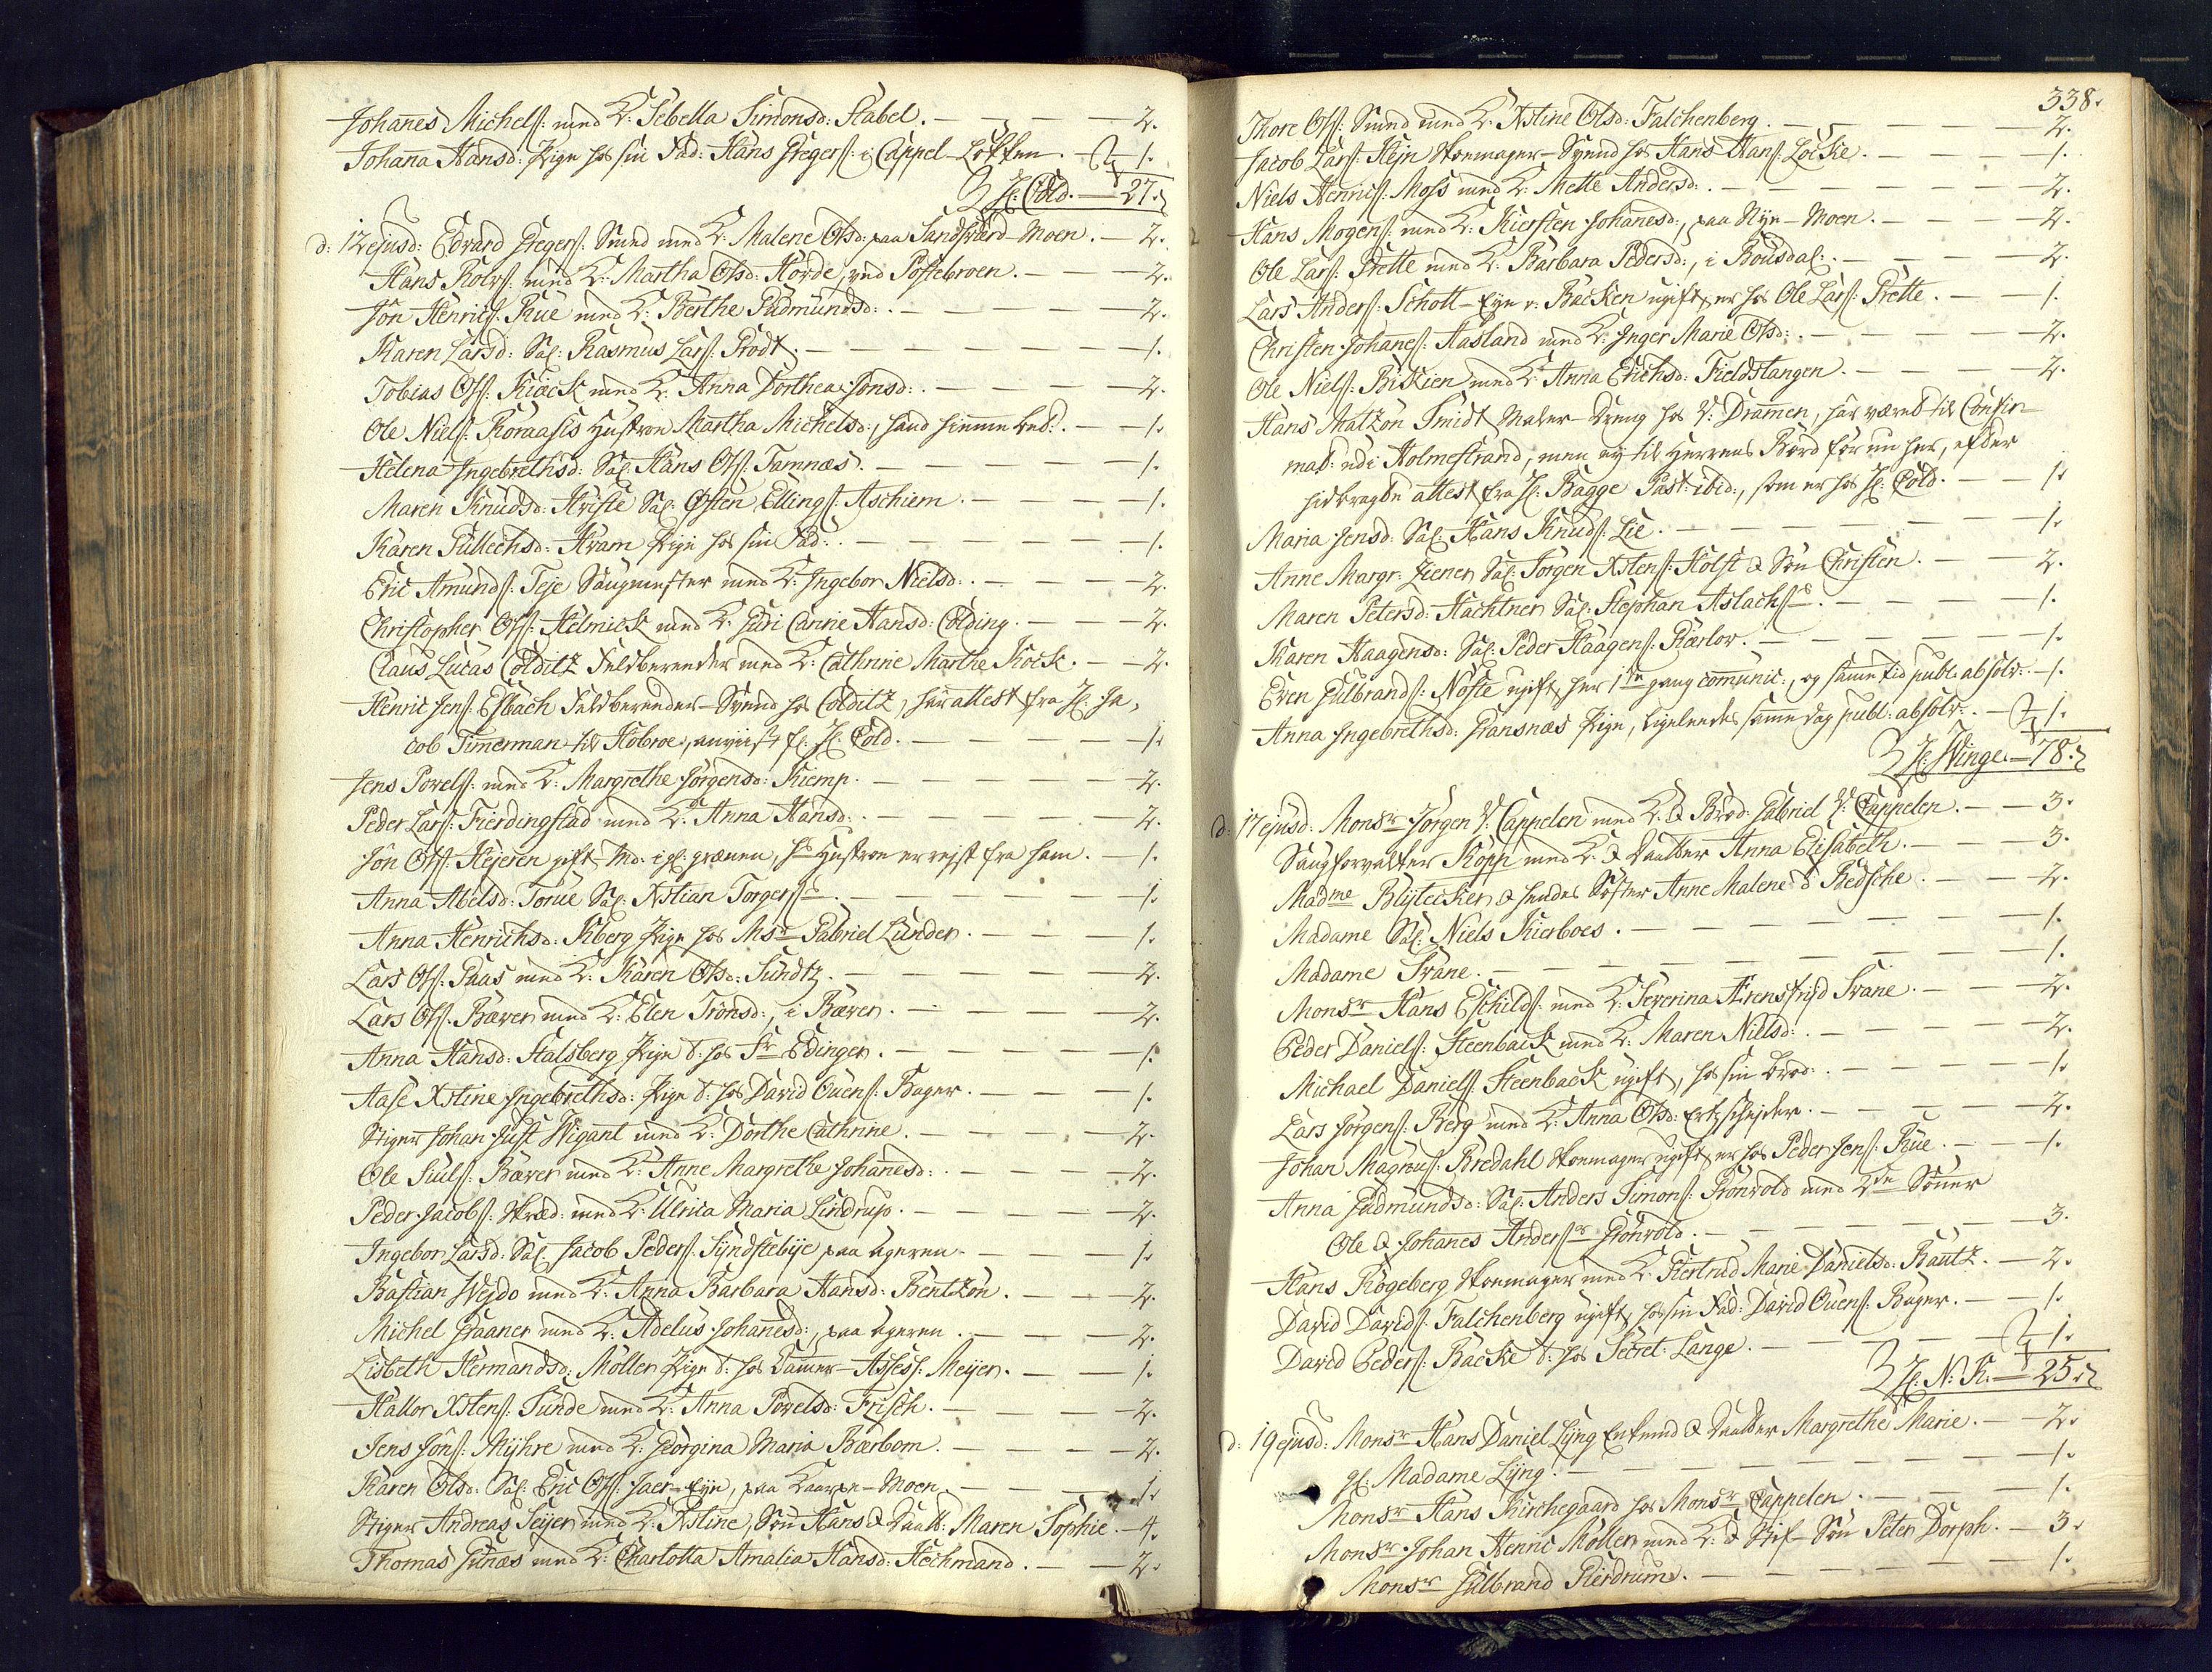 Johanes Michels: med K: Sebella Simonsd: Stabel. — 2.
Johana Hansd: Pige hos sin Fad: Hans Gregers: i Cappel-Løkken. — 1.
H: Cold. — 27.
d: 12 ejusd: Edvard Gregers: Smed med K: Malene Olsd: paa Sandsværd-Moen. — 2.
Hans Rolvs: med K: Martha Olsd: Horde, ved Postebroen. — 2.
Jon Henrics: Rue med K: Berthe Gudmundsd: — 2.
Karen Larsd: Sal: Rasmus Lars: Rodt. — 1.
Tobias Ols: Kiøck med K: Anna Dorthea Jonsd: — 2.
Ole Niels: Koraasis Hustroe Martha Michelsd:, hand hiemme bed: — 1.
Helena Ingebrethsd: Sal: Hans Ols: Tamnæs. — 1.
Maren Knudsd: Hviste Sal: Østen Ellings: Aschiem. — 1.
Karen Gullechsd: Hvam Pige hos sin Fad: — 1.
Eric Amunds: Teje Saugmester med K: Ingebor Nielsd: — 2.
Christopher Ols: Helmick med K: Guri Carine Hansd: Colding. — 2.
Claus Lucas Colditz Feldbereder med K: Cathrine Marthe Kock. — 2.
Henric Jens: Esbach Feldbereder-Svend hos Colditz, har attest fra H: Ja,
cob Timerman til Hobroe, anviist f: H: Cold. — 1.
Jens Povels: med K: Margrethe Jørgensd: Kiemp. — 2.
Peder Lars: Fierdingstad med K: Anna Hansd: — 2.
Jon Ols: Hejeren gift Md: i gl: grænen, hs Hustroe er rejst fra ham. — 1.
Anna Abelsd: Torue Sal: Xstian Torgers: — 1.
Anna Henrichsd: Kberg Pige hos Msr Gabriel Lunder. — 1.
Lars Ols: Gaas med K: Karen Olsd: Sundtz. — 2.
Lars Ols: Bæver med K: Elen Tronsd:, i Bæver. — 2.
Anna Hansd: Stalsberg Pige t: hos Sr Edinger. — 1.
Aase Xstine Ingebrethsd: Pige t: hos David Ouens: Bager. — 1.
Stiger Johan Just Wigant med K: Dorthe Cathrine. — 2.
Ole Juuls: Bæver med K: Anne Margrethe Johanesd: — 2.
Peder Jacobs: Skræd: med K: Ulrica Maria Lindrup. — 2.
Ingebor Larsd: Sal: Jacob Peders: Syndstebye paa Ageren. — 1.
Bastian Wejdo med K: Anna Barbara Hansd: Bentzon. — 2.
Michel Graaner med K: Adelus Johanesd:, paa Ageren. — 2.
Lisbeth Hermandsd: Møller Pige t: hos Kamer-Assess: Meyer. — 1.
Hallor Xstens: Sunde med K: Anna Povelsd: Frisch. — 2.
Jens Jons: Myhre med K: Georgina Maria Bærbom. — 2.
Karen Olsd: Sal: Eric Ols: Jaer-Eje, paa Laavse-Moen. — 1.
Stiger Andreas Seyer med K: Xstine, Søn Hans & Daatt: Maren Sophie. — 4.
Thomas Gunæs med K: Charlotta Amalia Hansd: Hechmand. — 2.
338.
Thore Ols: Smed med K: Xstine Olsd: Falchenberg. — 2.
Jacob Lars: Hejn Skoemager-Svend hos Hans Hans: Locke. — 1.
Niels Henrics: Moss med K: Mette Andersd: — 2.
Hans Mogens: med K: Kiersten Johanesd:, paa Nye-Moen. — 2.
Ole Lars: Prette med K: Barbara Pedersd:, i Bousdal: — 2.
Lars Anders: Schott-Eje v: Backen ugift, er hos Ole Lars: Prette. — 1.
Christen Johanes: Hasland med K: Inger Marie Olsd: — 2.
Ole Niels: Biskien med K: Anna Erichsd: Fieldstangen. — 2.
Hans Matzon Smidt Maler-Dreng hos V: Dramen, har været til Confir-
mat: udi Holmestrand, men ej til Herrens Bord før nu her, efter
hidbragte attest fra H: Bagge Past: ibid:, som er hos H: Cold. — 1.
Maria Jensd: Sal: Hans Knuds: Lie. — 1.
Anne Margr: Ziener Sal: Jørgen Xstens: Holst & Søn Christen. — 2.
Maren Petersd: Hachtner Sal: Stephan Aslachs: — 1.
Karen Haagensd: Sal: Peder Haagens: Kærlov. — 1.
Even Gulbrands: Noste ugift, her 1ste gang comunic:, og same tid publ: absolv: — 1.
Anna Ingebrethsd: Gransnæs Pige, ligeledes same dag publ: absolv: — 1.
H: Winge. — 78.
d: 17 ejusd: Monsr Jørgen V: Cappelen med K: & Brod: Gabriel V: Cappelen. — 3.
Saugforvalter Kopp med K: & Daatter Anna Elisabeth. — 3.
Madme Blytecker & hendes Søster Anne Malene d Bedsche. — 2.
Madame Sal: Niels Kierboes. — 1.
Madame Svane. — 1.
Monsr Hans Eschilds: med K: Severina Ærensfrijd Svane. — 2.
Peder Daniels: Steenback med K: Maren Nielsd: — 2.
Michael Daniels: Steenback ugift, hos sin brod: — 1.
Lars Jørgens: Berg med K: Anna Olsd: Ertzschejder. — 2.
Johan Magnus: Bredahl Skoemager ugift, er hos Peder Jens: Rue. — 1.
Anna Gudmundsd: Sal: Anders Simons: Grønvold med 2de Sønner
Ole & Johanes Anders: Grønvold. — 3.
Hans Kogeberg Skoemager med K: Giertrud Marie Danielsd: Bautz. — 2.
David Davids: Falchenberg ugift, hos sin Fad: David Ouens: Bager. — 1.
David Peders: Backe t: hos Secret: Lange. — 1.
H: N: K. — 25.
d: 19 ejusd: Monsr Hans Daniel Lyng Enkemd & Daatter Margrethe Marie. — 2.
gl: Madame Lyng. — 1.
Monsr Hans Kirchegaard hos Monsr Cappelen. — 1.
Monsr Johan Henric Møller med K: & Stif-Søn Peter Dorph. — 3.
Monsr Gulbrand Gierdrum. — 1.